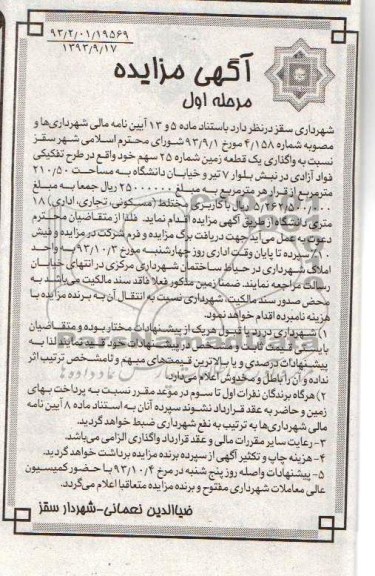 ۹۳/۲/۰۱/۱۹۵۶۹
۱۳۹۳/۹/۱۷
آگهی مزایده
مرحله اول
شهرداری سقز درنظر دارد باستناد ماده ۵ و ۱۳ آیین نامه مالی شهرداری‌ها و
مصوبه شماره ۴/۱۵۸ مورخ ۹۳/۹/۱ شورای محترم اسلامی شهر سقز
نسبت به واگذاری یک قطعه زمین شماره ۲۵ سهم خود واقع در طرح تفکیکی
فواد آزادی در نبش بلوار ۷ تیر و خیابان دانشگاه به مساحت ۲۱۰/۵۰
مترمربع از قرار هر مترمربع به مبلغ ۲۵۰۰۰۰۰۰ ریال جمعا به مبلغ
ریال با کاربری مختلط (مسکونی، تجاری، اداری) ۱۸
متری دانشگاه از طریق آگهی مزایده اقدام نماید. فلذا از متقاضیان محترم
دعوت به عمل می‌آید جهت دریافت برگ مزایده و فرم شرکت در مزایده و فیش
۱۰٪ سپرده تا پایان وقت اداری روز چهارشنبه مورخ ۹۳/۱۰/۳ به واحد
املاک شهرداری در حیاط ساختمان شهرداری مرکزی در انتهای خیابان
رسالت مراجعه نمایند. ضمنا زمین مذکور فعلا فاقد سند مالکیت می‌باشد به
محض صدور سند مالکیت، شهرداری نسبت به انتقال آن به برنده مزایده با
هزینه نامبرده اقدام خواهد نمود.
۱) شهرداری در رد یا قبول هر یک از پیشنهادات مختار بوده و متقاضیان
بایستی قیمت ثابت و معینی را در پیشنهادات خود قید نمایند لذا به
پیشنهادات درصدی و یا بالاترین قیمت‌های مبهم و نامشخص ترتیب اثر
نداده و آن را باطل و مخدوش اعلام می‌دارد.
۲) هرگاه برندگان نفرات اول تا سوم در موعد مقرر نسبت به پرداخت بهای
زمین و حاضر به عقد قرارداد نشوند سپرده آنان به استناد ماده ۸ آیین نامه
مالی شهرداری‌ها به ترتیب به نفع شهرداری ضبط خواهد گردید.
۳- رعایت سایر مقررات مالی و عقد قرارداد واگذاری الزامی می‌باشد.
۴- هزینه چاپ و تکثیر آگهی از سپرده برنده مزایده برداشت خواهد گردید.
۵- پیشنهادات واصله روز پنج شنبه در مرخ ۹۳/۱۰/۴ با حضور کمیسیون
عالی معاملات شهرداری مفتوح و برنده مزایده متعاقبا اعلام می‌گردد.
ضیاالدین نعمانی-شهردار سقز